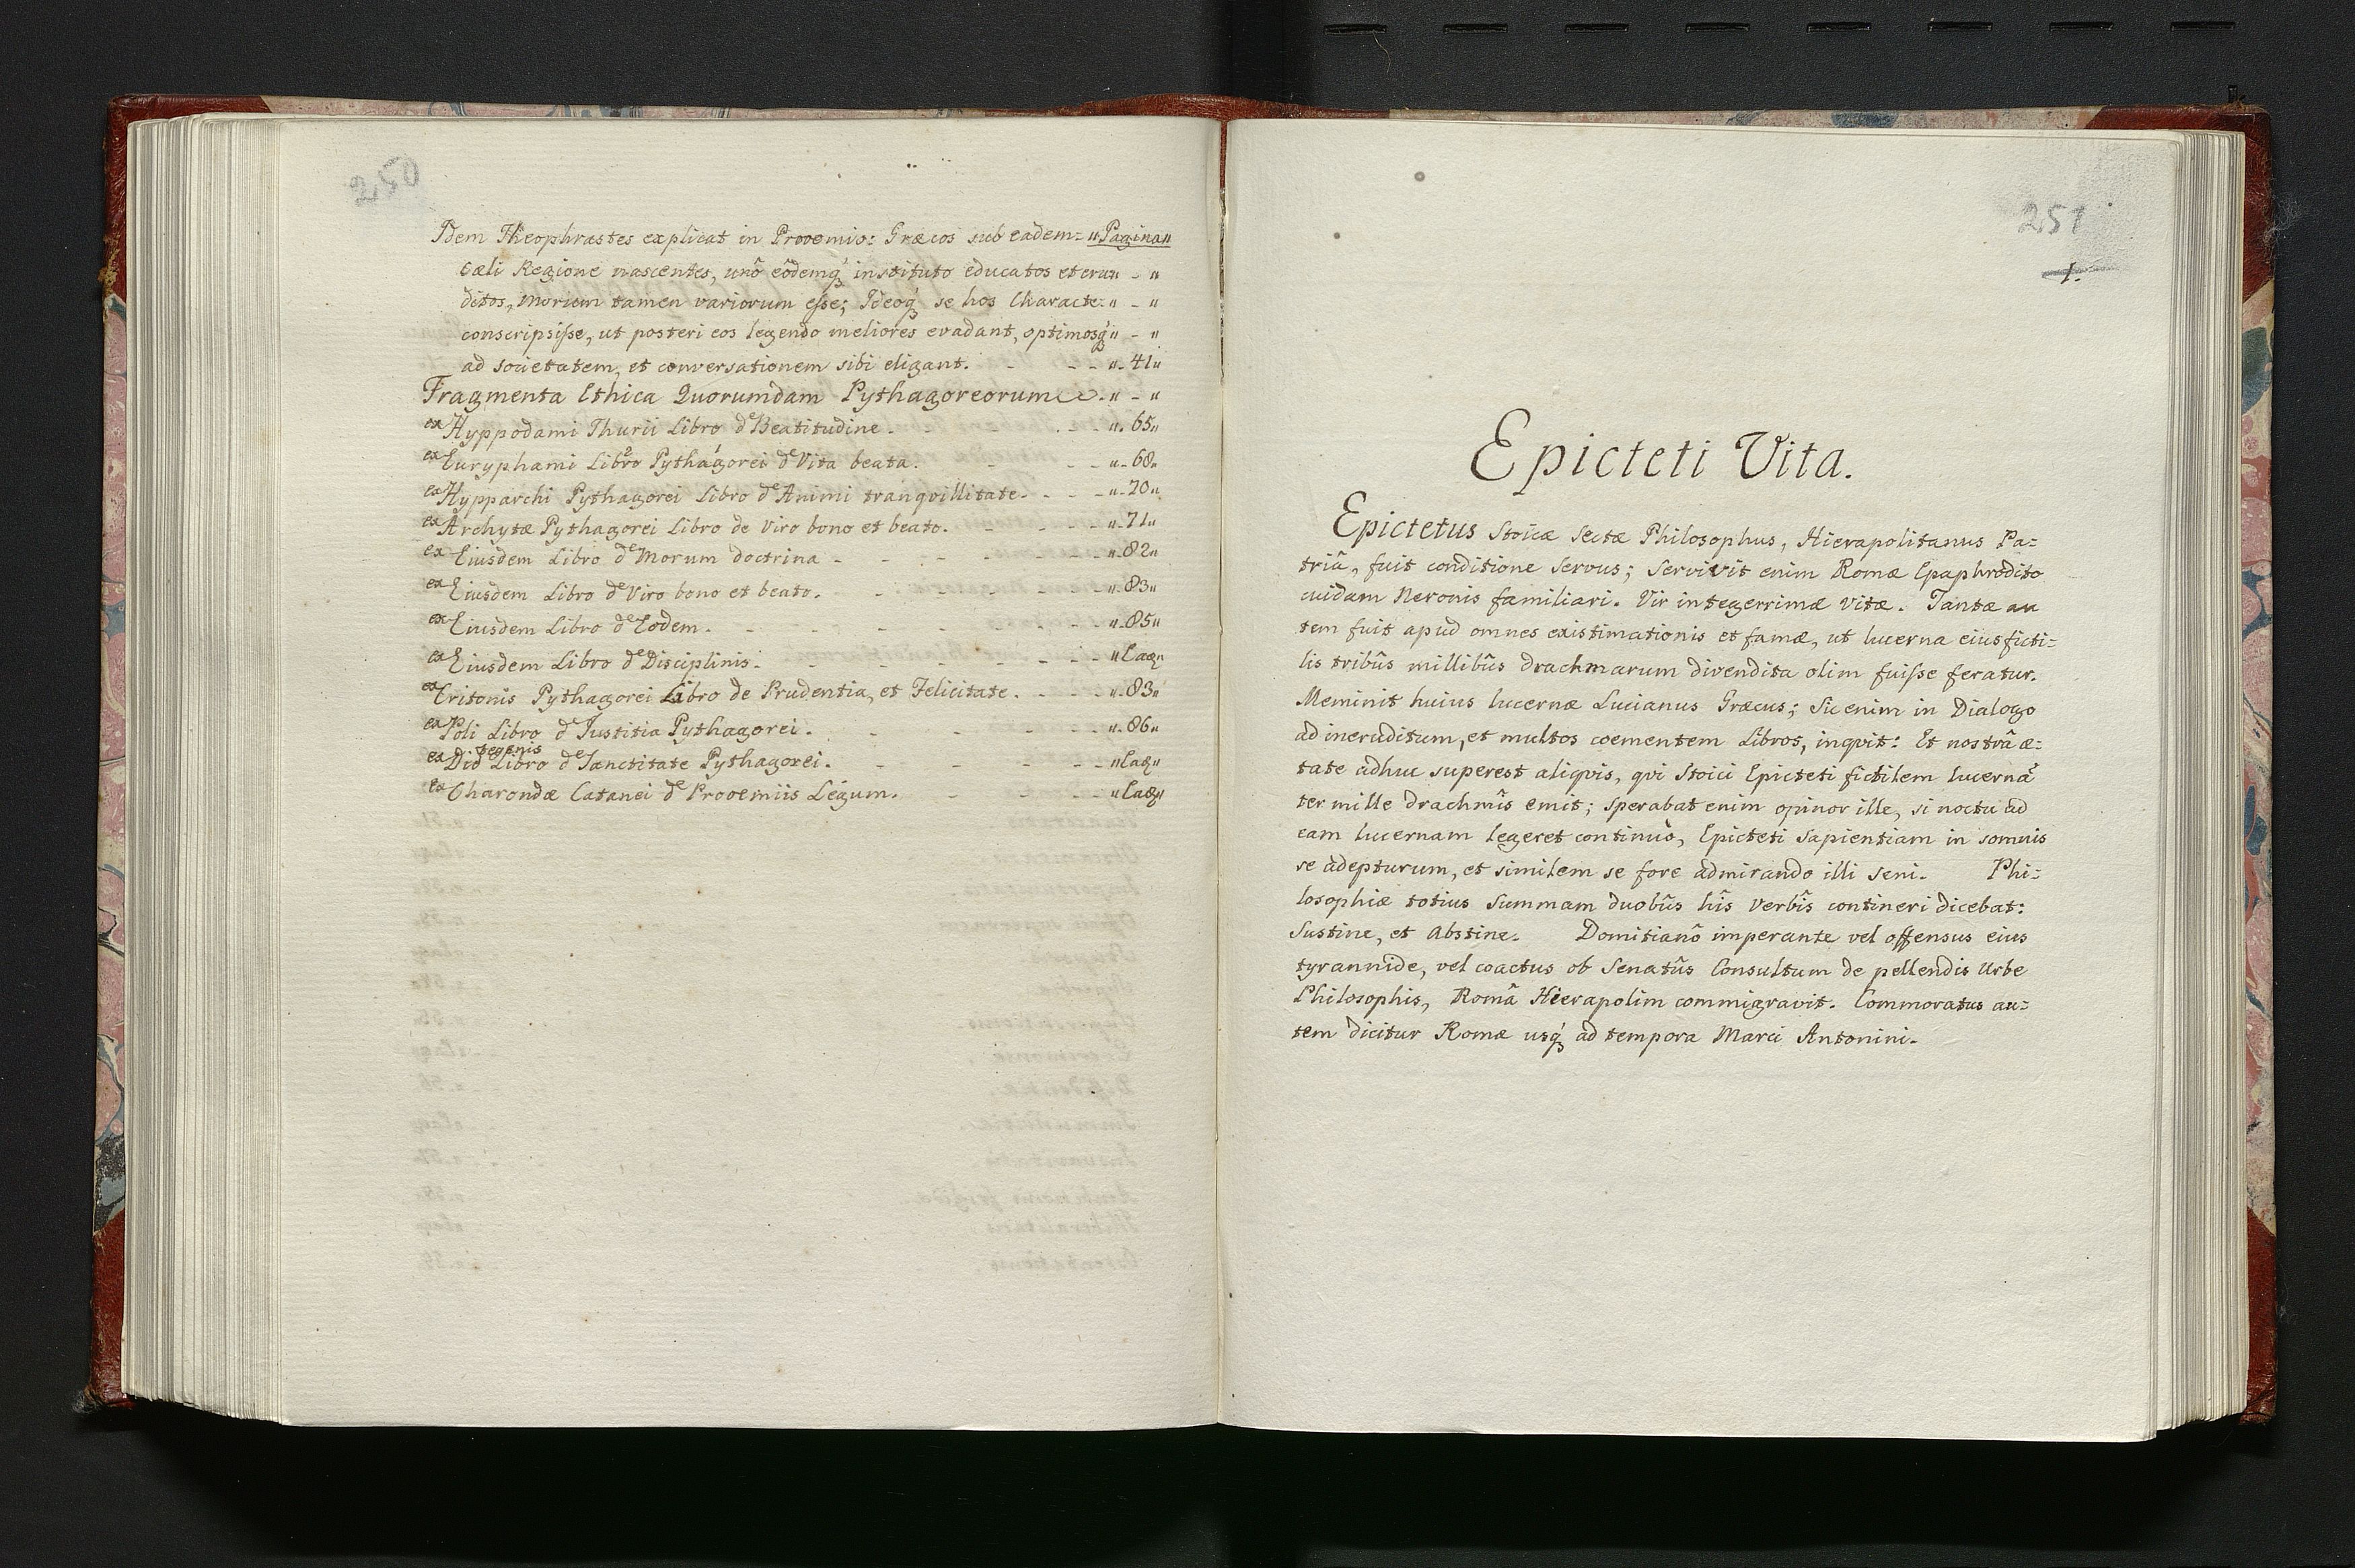 250
Idem Theophrastes explicat in Prooemio: Græcos sub eadem= "Pagina"
cæli Regione nascentes, unô eôdemq́ꝫ instituto educatos et eru" - "
ditos, morum tamen variorum esse; Ideoq́ꝫ se hos Characte:" - "
conscripsisse, ut posteri eos legendo meliores evadant, optimosq́ꝫ" - "
ad societatem, et conversationem sibi eligant. - - - "- 41"
Fragmenta Ethica Quorumdam Pythagoreorum - " - "
ex Hyppodami Thurii Libro de Beatitudine - - - - "- 65"
ex Euryphami Libro Pythagorei de Vita beata. - - - "- 68"
ex Hypparchi Pythagorei Libro de Animi tranqvillitate - - - - "- 70"
ex Archytæ Pythagorei Libro de Viro bono et beato. - - - - "- 71"
ex Eiusdem Libro de Morum doctrina - - - - - - - "- 82"
ex Eiusdem Libro de Viro bono et beato. - - - - - - "- 83"
ex Eiusdem Libro de Eodem. - - - - - - - "- 85"
ex Eiusdem Libro de Disciplinis. - - - - - - - "Eaq"
ex Critonis Pythagorei Libro de Prudentia, et Felicitate. - - - "- 83"
ex Poli Libro de Iustitia Pythagorei. - - - - - "- 86"
ex Diotegenis Libro de Sanctitate Pythagorei. - - - - - "Eaq"
ex Charondæ Catanei de Prooemiis Legum. - - - - "Eaq"
251
1.
Epicteti Vita.
Epictetus Stoicæ Sectæ Philosophus, Hierapolitanus Pa=
triâ, fuit conditione Servus; Servivit enim Romæ Epaphrodito
cuidam Neronis familiari. Vir integerrimæ Vitæ. Tantæ au
tem fuit apud omnes existimationis et famæ, ut lucerna eius ficti=
lis tribûs millibûs drachmarum divendita olim fuisse feratur.
Meminit huius lucernæ Lucianus Græcus; Sic enim in Dialogo
ad ineruditum, et multos coementem Libros, inqvit: Et nostrâ æ=
tate adhuc superest aliqvis, qvi Stoici Epicteti fictilem lucernã
ter mille drachmîs emit; sperabat enim opinor ille, si noctu ad
eam lucernam legeret continuò, Epicteti Sapientiam in somnis
se adepturum, et similem se fore admirando illi seni. Phi=
losophiæ totius Summam duobûs hîs Verbîs contineri dicebat:
Sustine, et Abstine. Domitianô imperante vel offensus eius
tyrannide, vel coactus ob Senatûs Consultum de pellendis Urbe
Philosophis, Româ Hierapolim commigravit. Commoratus au=
tem dicitur Romæ usq́ꝫ ad tempora Marci Antonini.